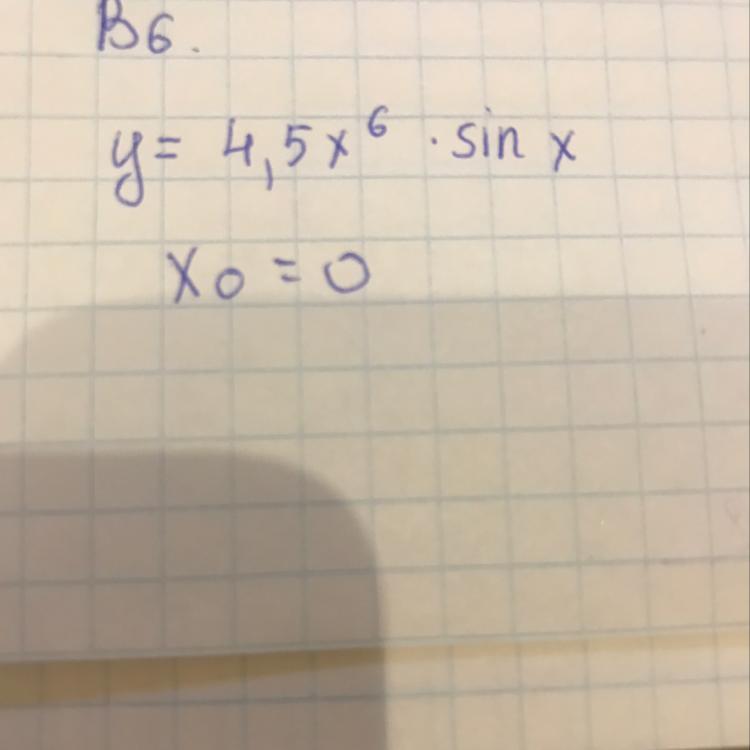 В6.
y = 4,5x⁶ · sin x
x₀ = 0